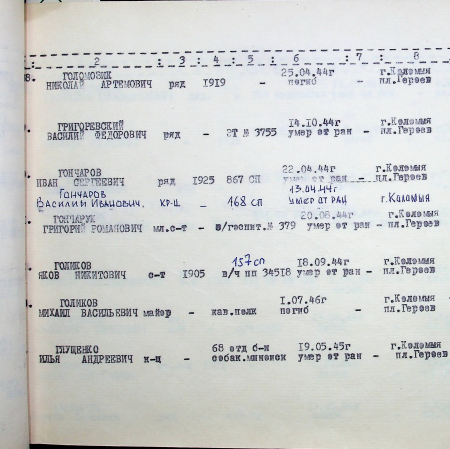 : 2 : 3 : 4 : 5 : 6 : 7 : 8
8. ГОЛОМОЗИК 25.04.44г г.Коломыя
НИКОЛАЙ АРТЕМОВИЧ ряд 1919 - погиб - пл.Героев
ГРИГОРЕВСКИЙ 14.10.44г г.Коломыя
ВАСИЛИЙ ФЕДОРОВИЧ ряд - ЭГ № 3755 умер от ран - пл.Героев
ГОНЧАРОВ 22.04.44г г.Коломыя
ИВАН СЕРГЕЕВИЧ ряд 1925 867 СП умер от ран - пл.Героев
Гончаров 13.04.44г
Василий Иванович. кр-ц - 168 сп умер от ран г.Коломыя
ГОНЧАРУК 20.08.44г г.Коломыя
ГРИГОРИЙ РОМАНОВИЧ мл.с-т - э/госпит.№ 379 умер от ран - пл.Героев
ГОЛИКОВ 157 сп 18.09.44г г.Коломыя
ЯКОВ НИКИТОВИЧ с-т 1905 в/ч пп 34518 умер от ран - пл.Героев
ГОЛИКОВ 1.07.46г г.Коломыя
МИХАИЛ ВАСИЛЬЕВИЧ майор - кав.полк погиб - пл.Героев
ГЛУЩЕНКО 68 отд б-н 19.05.45г г.Коломыя
ИЛЬЯ АНДРЕЕВИЧ к-ц - собак.миноиск умер от ран - пл.Героев